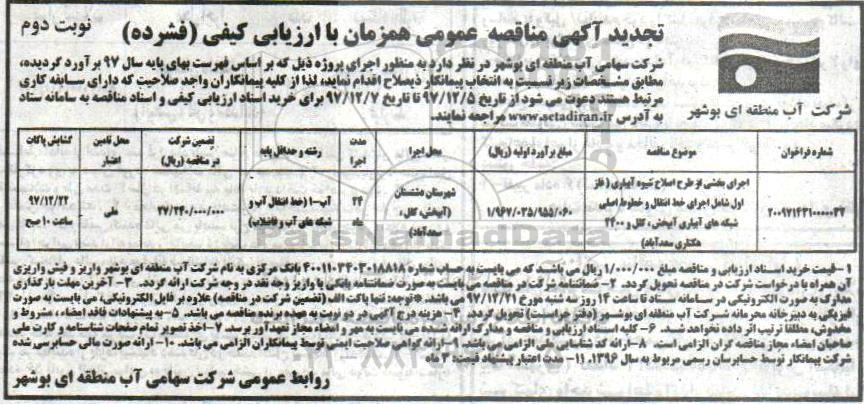 تجدید آگهی مناقصه عمومی همزمان با ارزیابی کیفی (فشرده)
نوبت دوم
شرکت سهامی آب منطقه ای بوشهر در نظر دارد به منظور اجرای پروژه ذیل که بر اساس فهرست بهای پایه سال ۹۷ برآورد گردیده،
مطابق مشخصات زیر نسبت به انتخاب پیمانکار ذیصلاح اقدام نماید، لذا از کلیه پیمانکاران واجد صلاحیت که دارای سابقه کاری
مرتبط هستند دعوت می شود از تاریخ ۹۷/۱۲/۵ تا تاریخ ۹۷/۱۲/۷ برای خرید اسناد ارزیابی کیفی و اسناد مناقصه به سامانه ستاد
به آدرس www.setadiran.ir مراجعه نمایند.
شرکت آب منطقه ای بوشهر
شماره فراخوان | موضوع مناقصه | مبلغ برآورد اولیه (ریال) | محل اجرا | مدت اجرا | رشته و حداقل پایه | تضمین شرکت در مناقصه (ریال) | محل تامین اعتبار | گشایش پاکات
اجرای بخشی از طرح اصلاح شیوه آبیاری (فاز اول شامل اجرای خط انتقال و خطوط اصلی شبکه های آبیاری آبپخش، کلل و ۲۴۰۰ هکتاری سعدآباد) | ۱/۹۶۷/۰۳۵/۹۵۵/۰۶۰ | شهرستان دشتستان (آبپخش، کلل، سعدآباد) | ۲۴ ماه | آب-۱ (خط انتقال آب و شبکه های آب و فاضلاب) | ۲۷/۲۴۰/۰۰۰/۰۰۰ | ملی | ۹۷/۱۲/۲۲ ساعت ۱۰ صبح
۱- قیمت خرید اسناد ارزیابی و مناقصه مبلغ ۱/۰۰۰/۰۰۰ ریال می باشند که می بایست به حساب شماره ۴۰۰۱۱۰۳۴۰۳۰۱۸۸۱۸ بانک مرکزی به نام شرکت آب منطقه ای بوشهر واریز و فیش واریزی
آن همراه با درخواست شرکت در مناقصه تحویل گردد. ۲- ضمانتنامه شرکت در مناقصه می بایست به صورت ضمانتنامه بانکی یا واریز وجه نقد در وجه شرکت ارائه گردد. ۳- آخرین مهلت بارگذاری
مدارک به صورت الکترونیکی در سامانه ستاد تا ساعت ۱۴ روز سه شنبه مورخ ۹۷/۱۲/۲۱ می باشد. *توجه: تنها پاکت الف (تضمین شرکت در مناقصه) علاوه بر فایل الکترونیکی، می بایست به صورت
فیزیکی به دبیرخانه محرمانه شرکت آب منطقه ای بوشهر (دفتر حراست) تحویل گردد. ۴- هزینه درج آگهی در دو نوبت به عهده برنده مناقصه می باشد. ۵- به پیشنهادات فاقد امضاء، مشروط و
مخدوش، مطلقا ترتیب اثر داده نخواهد شد. ۶- کلیه اسناد ارزیابی و مناقصه و مدارک ارائه شده می بایست به مهر و امضاء مجاز تعهدآور برسد. ۷- اخذ تصویر تمام صفحات شناسنامه و کارت ملی
صاحبان امضاء مجاز مناقصه گران الزامی است. ۸- ارائه کد شناسایی ملی الزامی می باشد. ۹- ارائه گواهی صلاحیت ایمنی توسط پیمانکاران الزامی می باشد. ۱۰- ارائه صورت مالی حسابرسی شده
شرکت پیمانکار توسط حسابرسان رسمی مربوط به سال ۱۳۹۶. ۱۱- مدت اعتبار پیشنهاد قیمت: ۳ ماه
روابط عمومی شرکت سهامی آب منطقه ای بوشهر
ParsNamadData